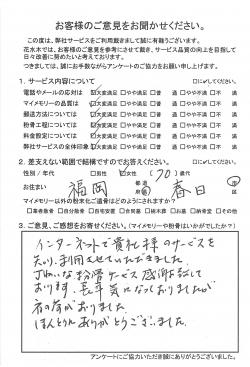 お客様のご意見をお聞かせください。
この度は、弊社サービスをご利用戴きまして誠に有難うございます。
花水木では、お客様のご意見を参考にさせて戴き、サービス品質の向上を目指して
日々改善に努めたいと考えております。
つきましては、誠にお手数ながらアンケートのご協力をお願い申し上げます。
1. サービス内容について □に✓してください。
電話やメールの応対は ☑大変満足 □やや満足 □普 通 □やや不満 □不 満
マイメモリーの品質は ☑大変満足 □やや満足 □普 通 □やや不満 □不 満
郵送方法については ☑大変満足 □やや満足 □普 通 □やや不満 □不 満
粉骨工程については ☑大変満足 □やや満足 □普 通 □やや不満 □不 満
料金設定については ☑大変満足 □やや満足 □普 通 □やや不満 □不 満
弊社サービスの全体印象 ☑大変満足 □やや満足 □普 通 □やや不満 □不 満
2. 差支えない範囲で結構ですのでお答えください。
性別/年代 □男性 ☑女性 (70) 歳代
お住まい 福岡 都道府県 春日 市
マイメモリー以外の粉末化ご遺骨はどのようにされますか?
□業者散骨 □自分散骨 □自宅安置 □合同墓 □樹木葬 □お墓 □納骨堂 □その他
3. ご意見、ご感想をお寄せください。(マイメモリーや粉骨はいかがでしたか?)
インターネットで貴社様のサービスを
知り、利用させていただきました。
丁ねいな粉骨サービス感謝致して
おります。長年気になっておりましたが
ほんとうにありがとうございました。
アンケートにご協力いただき誠にありがとうございました。